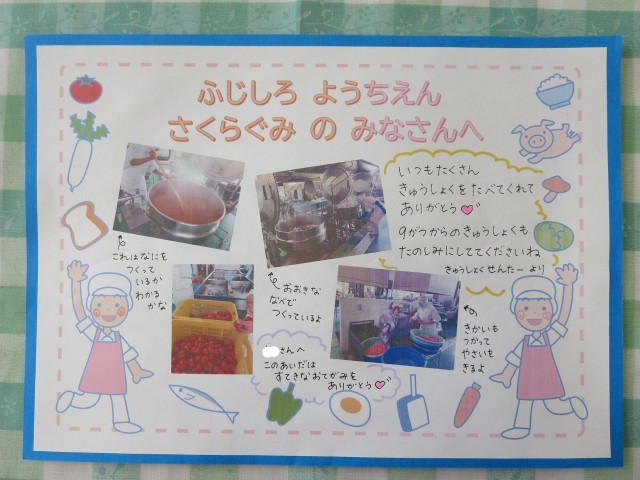 ふじしろ ようちえん
さくらぐみ の みなさんへ
いつもたくさん
きゅうしょくをたべてくれて
ありがとう
9がつからのきゅうしょくも
たのしみにしててくださいね
きゅうしょくせんたーより
これはなにを
つくって
いるか
わかる
かな
おおきな
なべで
つくっているよ
きかいも
つかって
やさいを
きるよ
さんへ
このあいだは
すてきなおてがみを
ありがとう